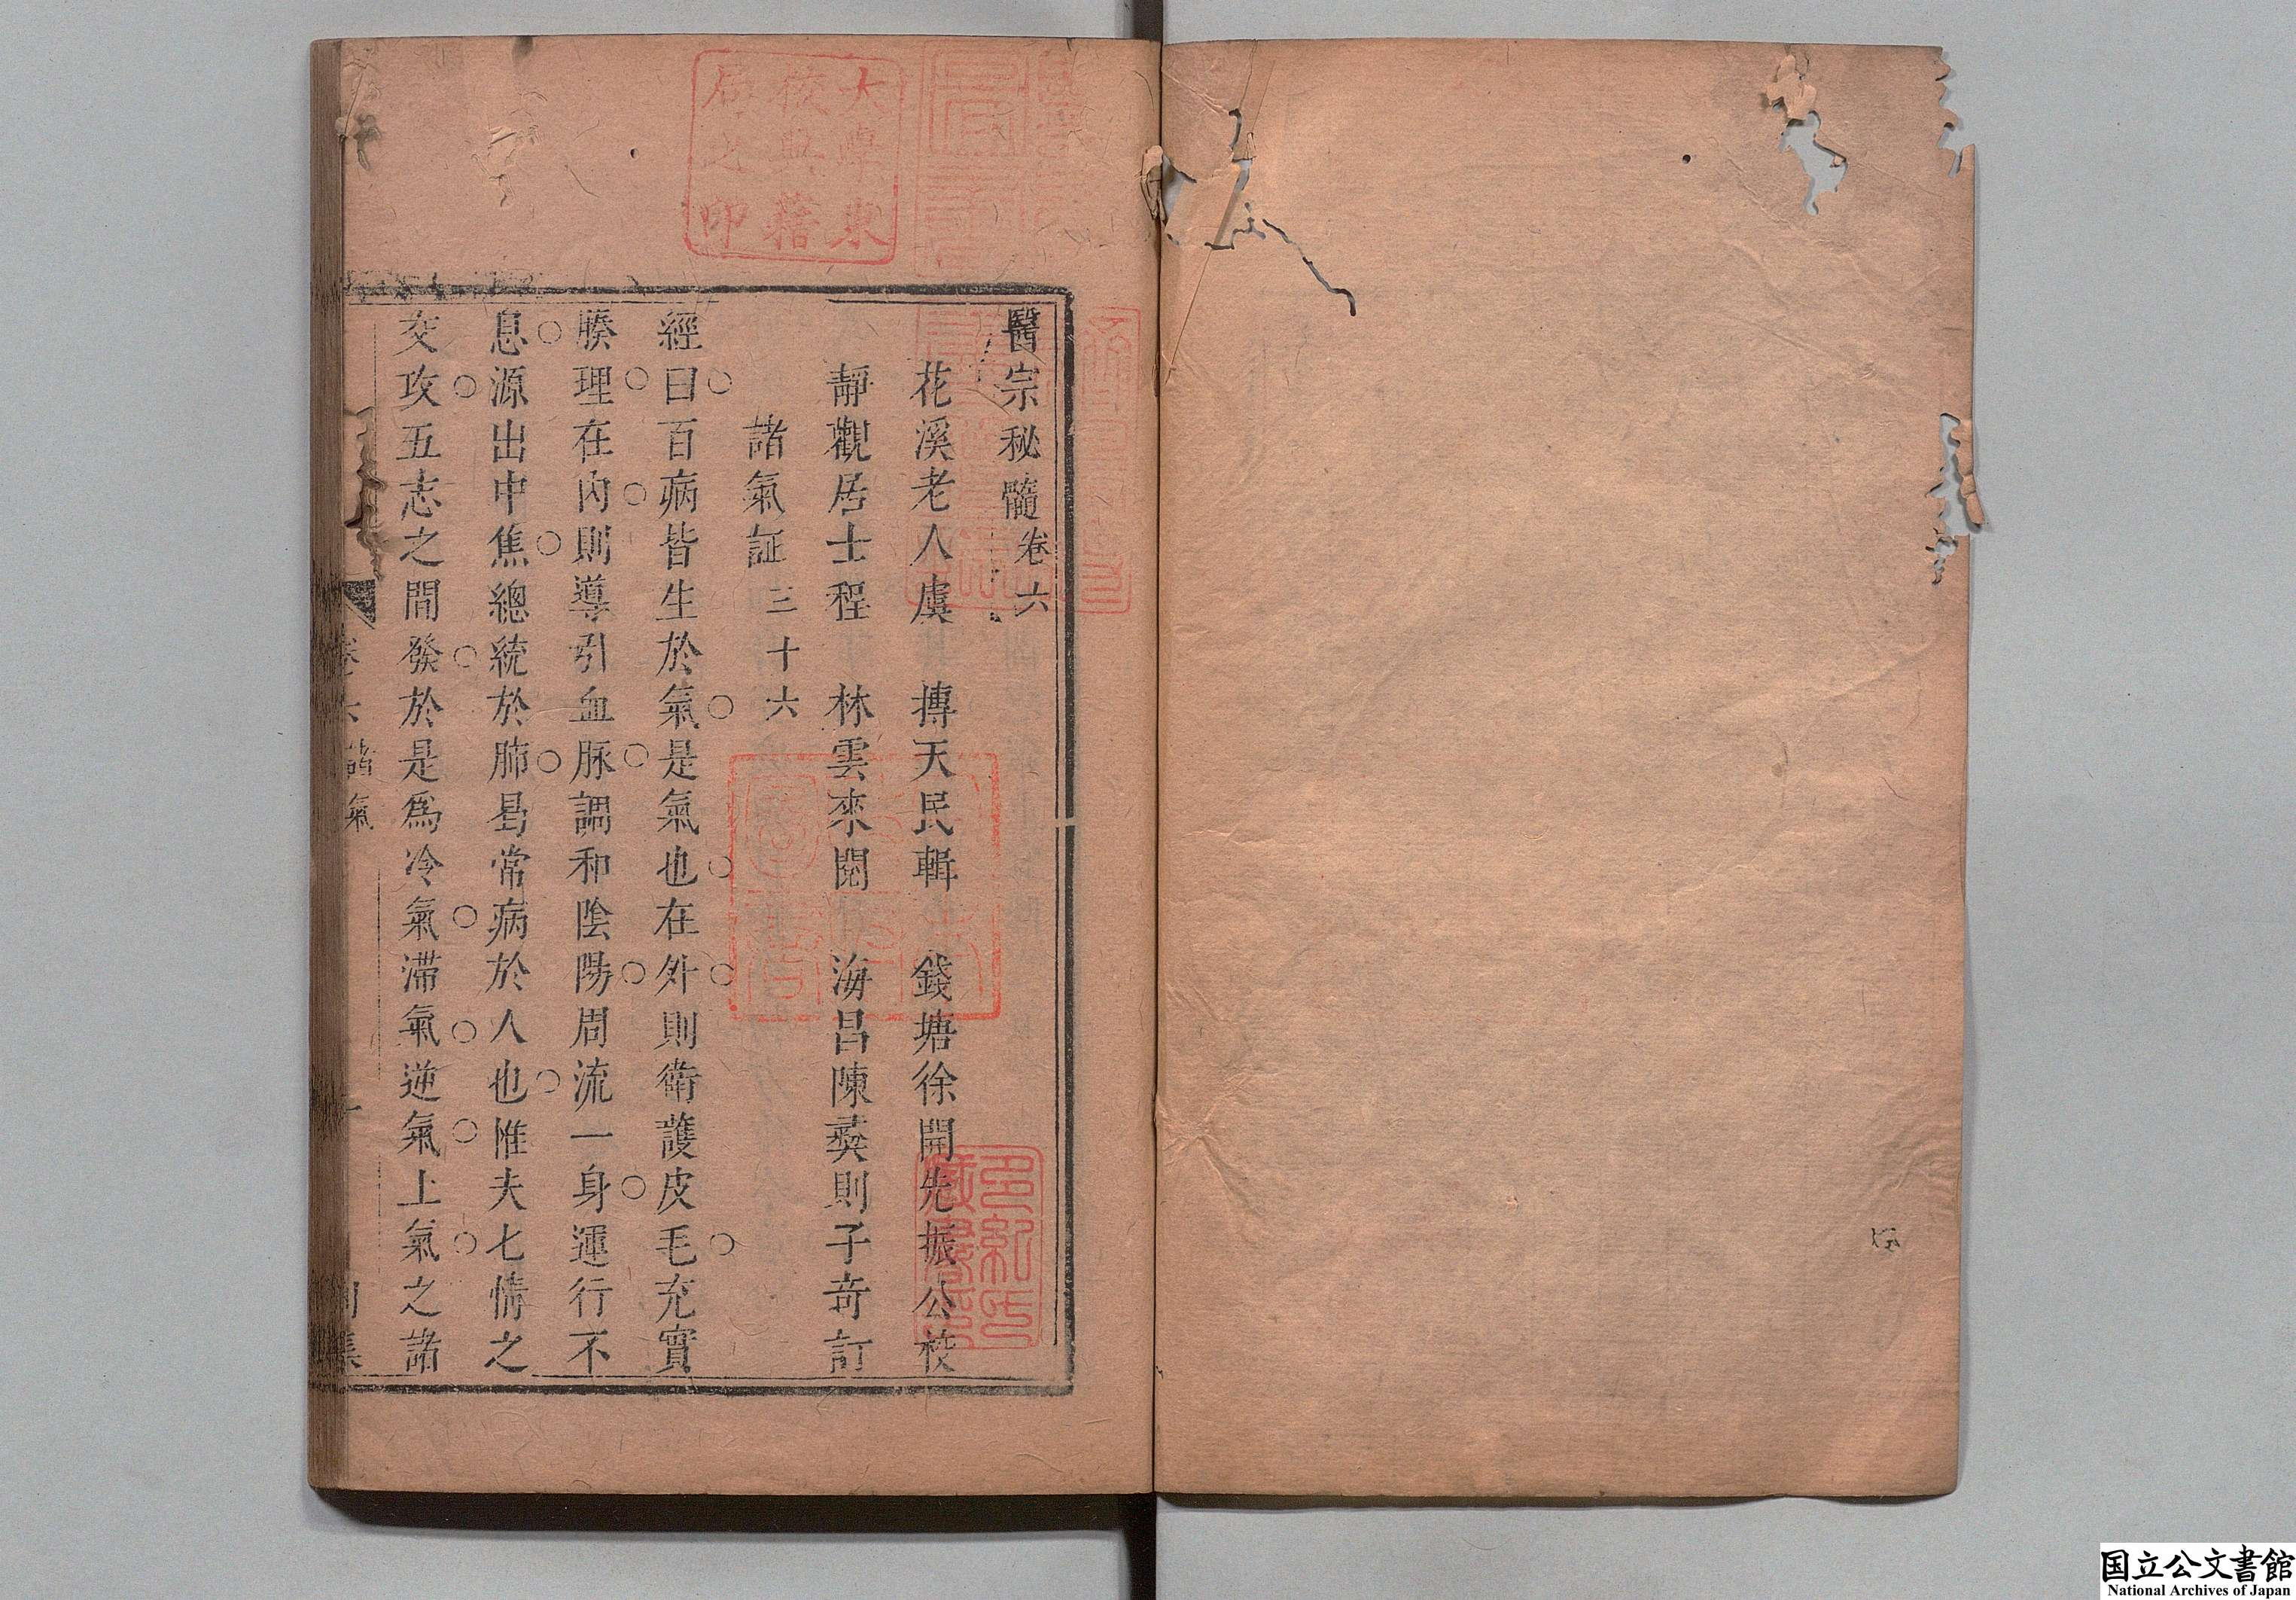 醫宗秘髓卷六
花溪老人虞　摶天民輯　錢塘徐開先振公校
靜觀居士程　林雲來閱　海昌陳䕫則子奇訂
諸氣証三十六
經曰百病皆生於氣是氣也在外則衛護皮毛充實
腠理在內則導引血脉調和陰陽周流一身運行不
息源出中焦總統於肺曷常病於人也惟夫七情之
交攻五志之間發於是爲冷氣滯氣逆氣上氣之諸
卷六 諸氣
大學東
校典籍
局之印
多紀氏
藏書印
国立公文書館
National Archives of Japan